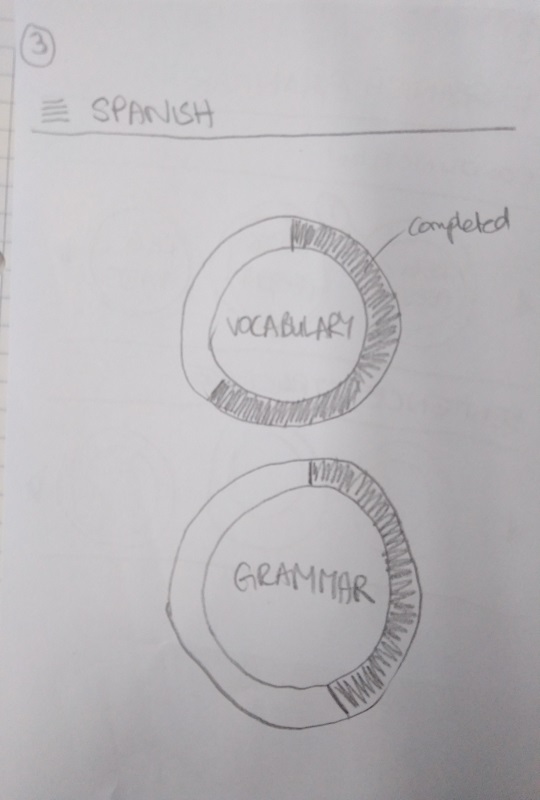 3
SPANISH
completed
VOCABULARY
GRAMMAR